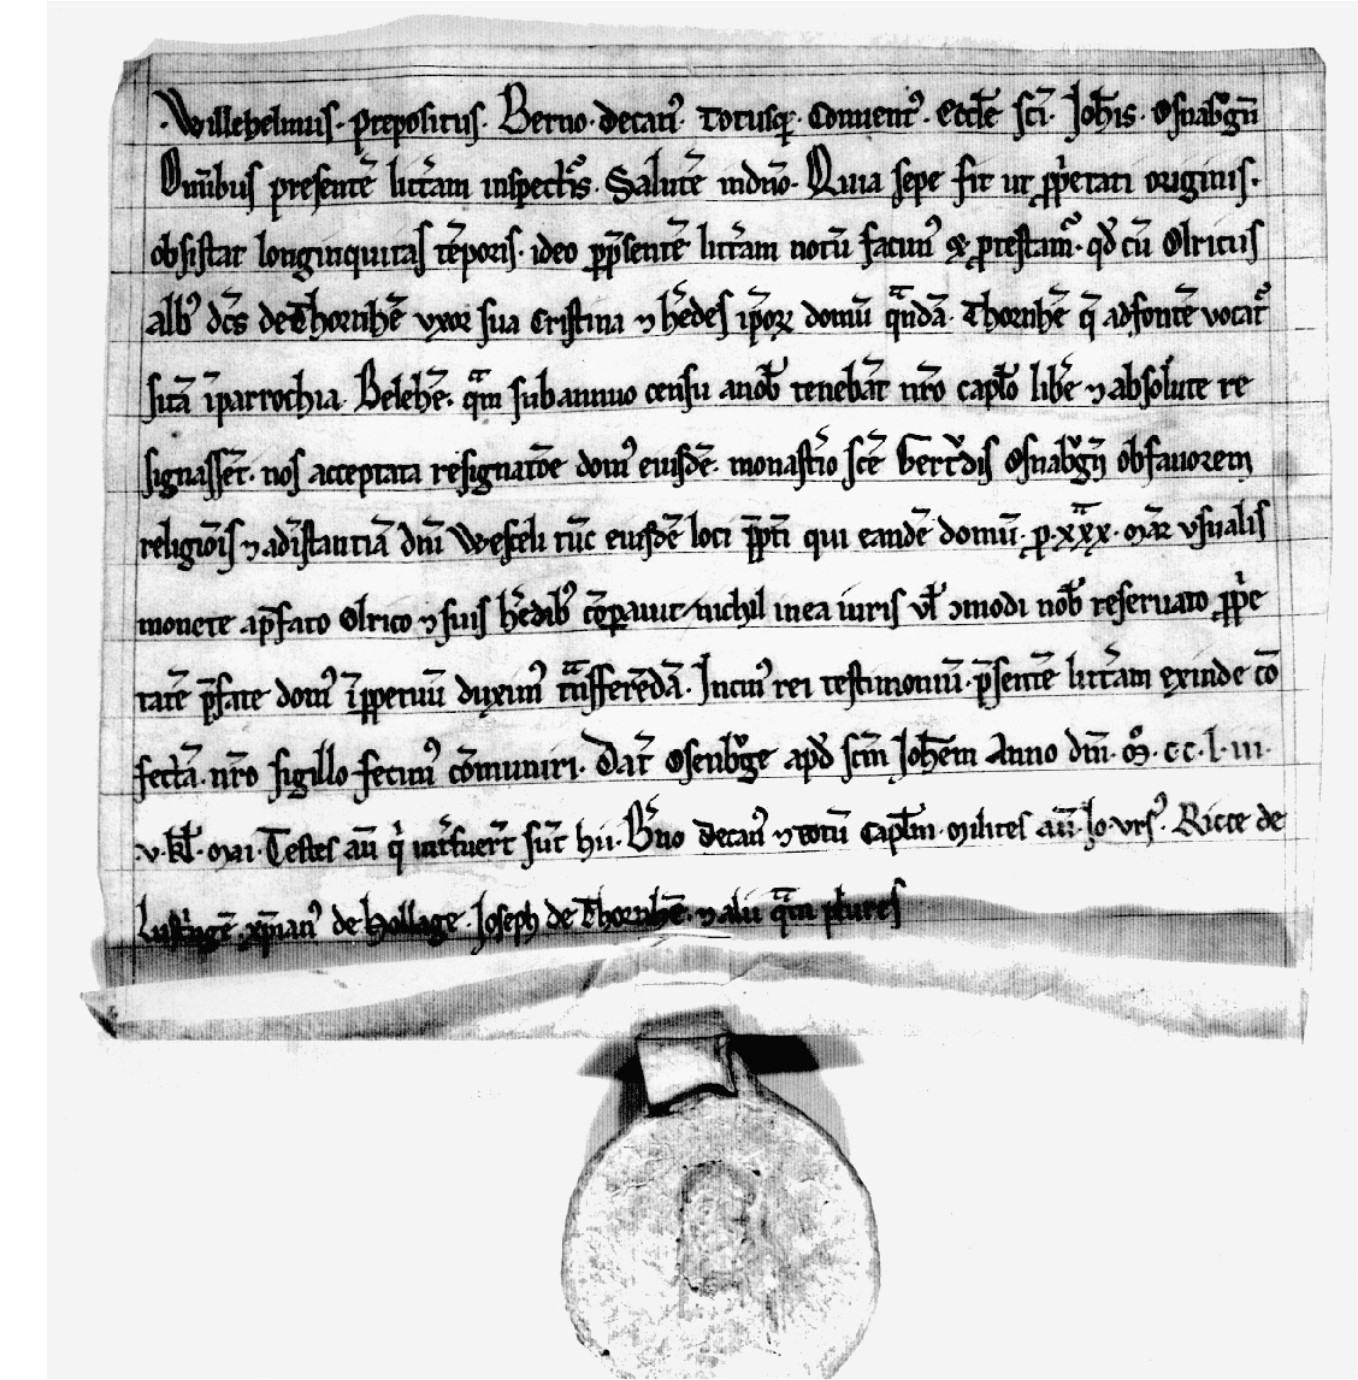 ·Willehelmus· prepositus· Berno· decanꝰ Totusqꝫ Conuentꝰ· eccl̄e sc̄i· Joh̄is· Osnabᵍgn̄
Om̄ibus presentē litt̓am inspectꝭis· Salutē in dn̄o· Quia sepe fit ut ꝓp̍etati originis·
obsistat longinquitas tēporis· ideo ꝑ p̄sentē litt̓am notū facimꝰ & ꝓtestam᷑· qd̕ cū Olricus
albꝰ dc̄s de Thornhē vxor sua Cristina ⁊ h̓edes ip̄oꝝ domū qᵃndā· Thornhē q̄ ad fontē vocat᷑
sitā ī parrochia· Belehē· qᵃm sub annuo censu a nob̄ tenebāt nr̄o capl̄o lib̓e ⁊ absolute re
signassēt· nos acceptata resignatōe domꝰ eiusdē· monast̓io sc̄e Gertᵈdis Osnabᵍgn̄ ob fauorem
religiōis ⁊ ad īstantiā dn̄i Wesceli tūc eiusdē loci p̄pti qui eandē domū· ꝓ· xxxᵃ· mar̄ vsualis
monete a p̄fato Olrico ⁊ suis h̓edibꝰ cōparauit / nichil in ea iuris vl̄ ↄmodi nob̄ reseruato ꝓp̍e
tatē p̄fate domꝰ ī ꝑpetuū duximꝰ tᵃnsferēdā· In cuiꝰ rei testimoniū· p̄sentē litt̓am exinde cō
fectā· nr̄o sigillo fecimꝰ cōmuniri· Dat̄ Osenbᵍge apd̕ sc̄m Joh̄em Anno dn̄i· mͦ· cc· l· iii·
·v· kl̄· mai· Testes aū qⁱ int̓fuer̄t sūt hii· B̓no decanꝰ ⁊ totū capl̄m· milites aū· Jo· vrsꝰ· Ricce de
xp̄ianꝰ de Hollage· Joseph de Thornhē· ⁊ alii qᵃm plures